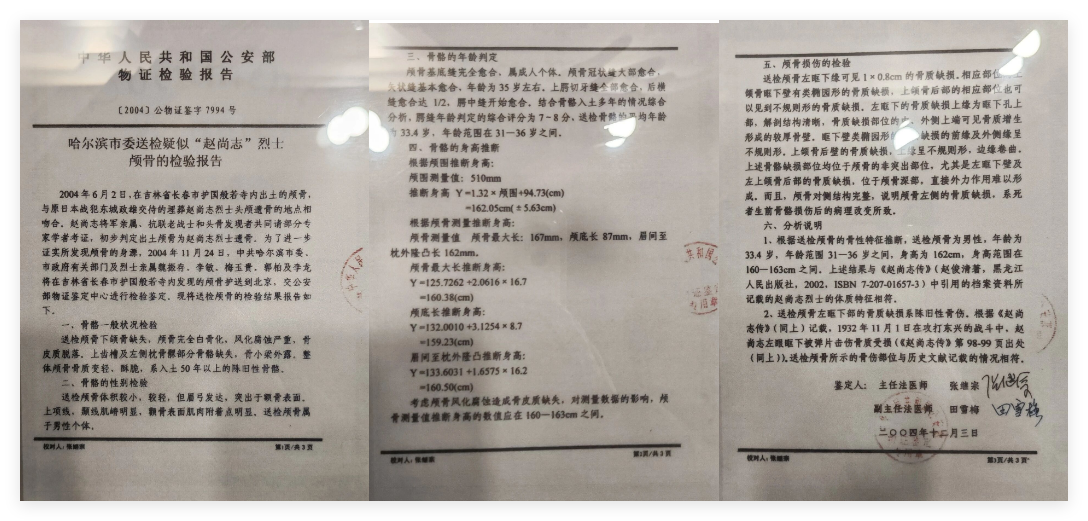 中华人民共和国公安部
物证检验报告
〔2004〕公物证鉴字 7994 号
哈尔滨市委送检疑似“赵尚志”烈士
颅骨的检验报告
2004年6月2日,在吉林省长春市护国般若寺内出土的颅骨,
与原日本战犯东城政雄交待的埋葬赵尚志烈士头颅遗骨的地点相
吻合。赵尚志将军亲属、抗联老战士和头骨发现者共同请部分专
家学者考证,初步判定出土颅骨为赵尚志烈士遗骨。为了进一步
证实所发现颅骨的身源,2004年11月24日,中共哈尔滨市委、
市政府有关部门及烈士亲属魏振存、李敏、梅玉贵、郭柏及李龙
将在吉林省长春市护国般若寺内发现的颅骨护送到北京,交公安
部物证鉴定中心进行检验鉴定。现将送检颅骨的检验结果报告如
下。
一、骨骼一般状况检验
送检颅骨下颌骨缺失,颅骨完全白骨化。风化腐蚀严重,骨
皮质脱落。上齿槽及左侧枕骨髁部分骨骼缺失,骨小梁外露。整
体颅骨骨质变轻、酥脆,系入土50年以上的陈旧性骨骼。
二、骨骼的性别检验
送检颅骨体积较小,较轻,但眉弓发达,突出于额骨表面。
上项线,颞线肌嵴明显,颧骨表面肌肉附着点明显。送检颅骨属
于男性个体。
校对人:张继宗 第1页/共3页
三、骨骼的年龄判定
颅骨基底缝完全愈合,属成人个体。颅骨冠状缝大部愈合,
矢状缝基本愈合。年龄为35岁左右。上腭切牙缝全部愈合,后横
缝愈合达 1/2,腭中缝开始愈合。结合骨骼入土多年的情况综合
分析,腭缝年龄判定的综合评分为7-8分,送检骨骼的平均年龄
为33.4岁,年龄范围在31—36岁之间。
四、骨骼的身高推断
根据颅围推断身高:
颅围测量值: 510mm
推断身高 Y=1.32×颅围+94.73(cm)
=162.05cm(±5.63cm)
根据颅骨测量推断身高:
颅骨测量值 颅骨最大长: 167mm,颅底长 87mm,眉间至
枕外隆凸长 162mm。
颅骨最大长推断身高:
Y=125.7262+2.0616×16.7
=160.38(cm)
颅底长推断身高:
Y=132.0010+3.1254×8.7
=159.23(cm)
眉间至枕外隆凸推断身高:
Y=133.6031+1.6575×16.2
=160.50(cm)
考虑颅骨风化腐蚀造成骨皮质缺失,对测量数据的影响,颅
骨测量值推断身高的数值应在160—163cm之间。
校对人:张继宗 第2页/共3页
五、颅骨损伤的检验
送检颅骨左眶下缘可见1×0.8cm的骨质缺损。相应部位
颌骨眶下壁有类椭圆形的骨质缺损,上颌骨后部的相应部位也可
以见到不规则形的骨质缺损。左眶下的骨质缺损上缘为眶下孔上
部,解剖结构清晰,骨质缺损部位的 外侧上端可见骨质增生
形成的较厚骨壁。眶下壁类椭圆形的 缺损的前缘及外侧缘呈
不规则形。上颌骨后壁的骨质缺损, 缘呈不规则形,边缘卷曲。
上述骨骼缺损部位均位于颅骨的非突出部位。尤其是左眶下壁及
左上颌骨后部的骨质缺损,位于颅骨深部,直接外力作用难以形
成。而且,颅骨对侧结构完整,说明颅骨左侧的骨质缺损,系死
者生前骨骼损伤后的病理改变所致。
六、分析说明
1、根据送检颅骨的骨性特征推断,送检颅骨为男性,年龄为
33.4岁,年龄范围31—36岁之间,身高为162cm,身高范围在
160—163cm之间。上述结果与《赵尚志传》(赵俊清著,黑龙江
人民出版社,2002,ISBN 7-207-01657-3)中引用的档案资料所
记载的赵尚志烈士的体质特征相符。
2、送检颅骨左眶下部的骨质缺损系陈旧性骨伤。根据《赵尚
志传》(同上)记载,1932年11月1日在攻打东兴的战斗中,赵
尚志左眼眶下被弹片击伤骨质受损(《赵尚志传》第98-99页出处
(同上))。送检颅骨所示的骨伤部位与历史文献记载的情况相符。
鉴定人: 主任法医师 张继宗 张继宗
副主任法医师 田雪梅 田雪梅
二〇〇四年十二月三日
校对人:张继宗 第3页/共3页